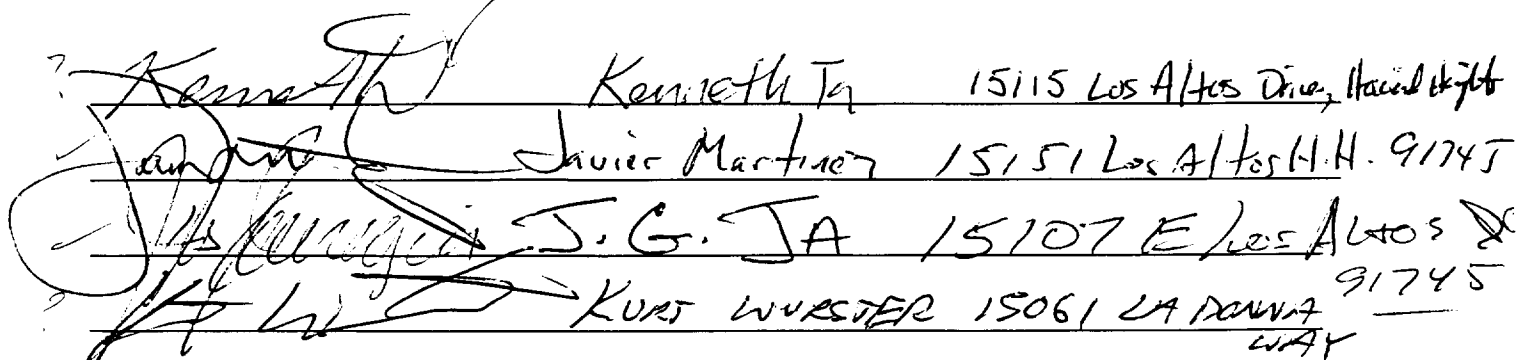 Kenneth Kenneth Ta 15115 Los Altos Drive, Hacind Hight
Javier Martinez 15151 Los Altos H.H. 91745
J.G. JA 15107 E Los ALtos Dr
91745
KURT WURSTER 15061 LA DONNA
WAY